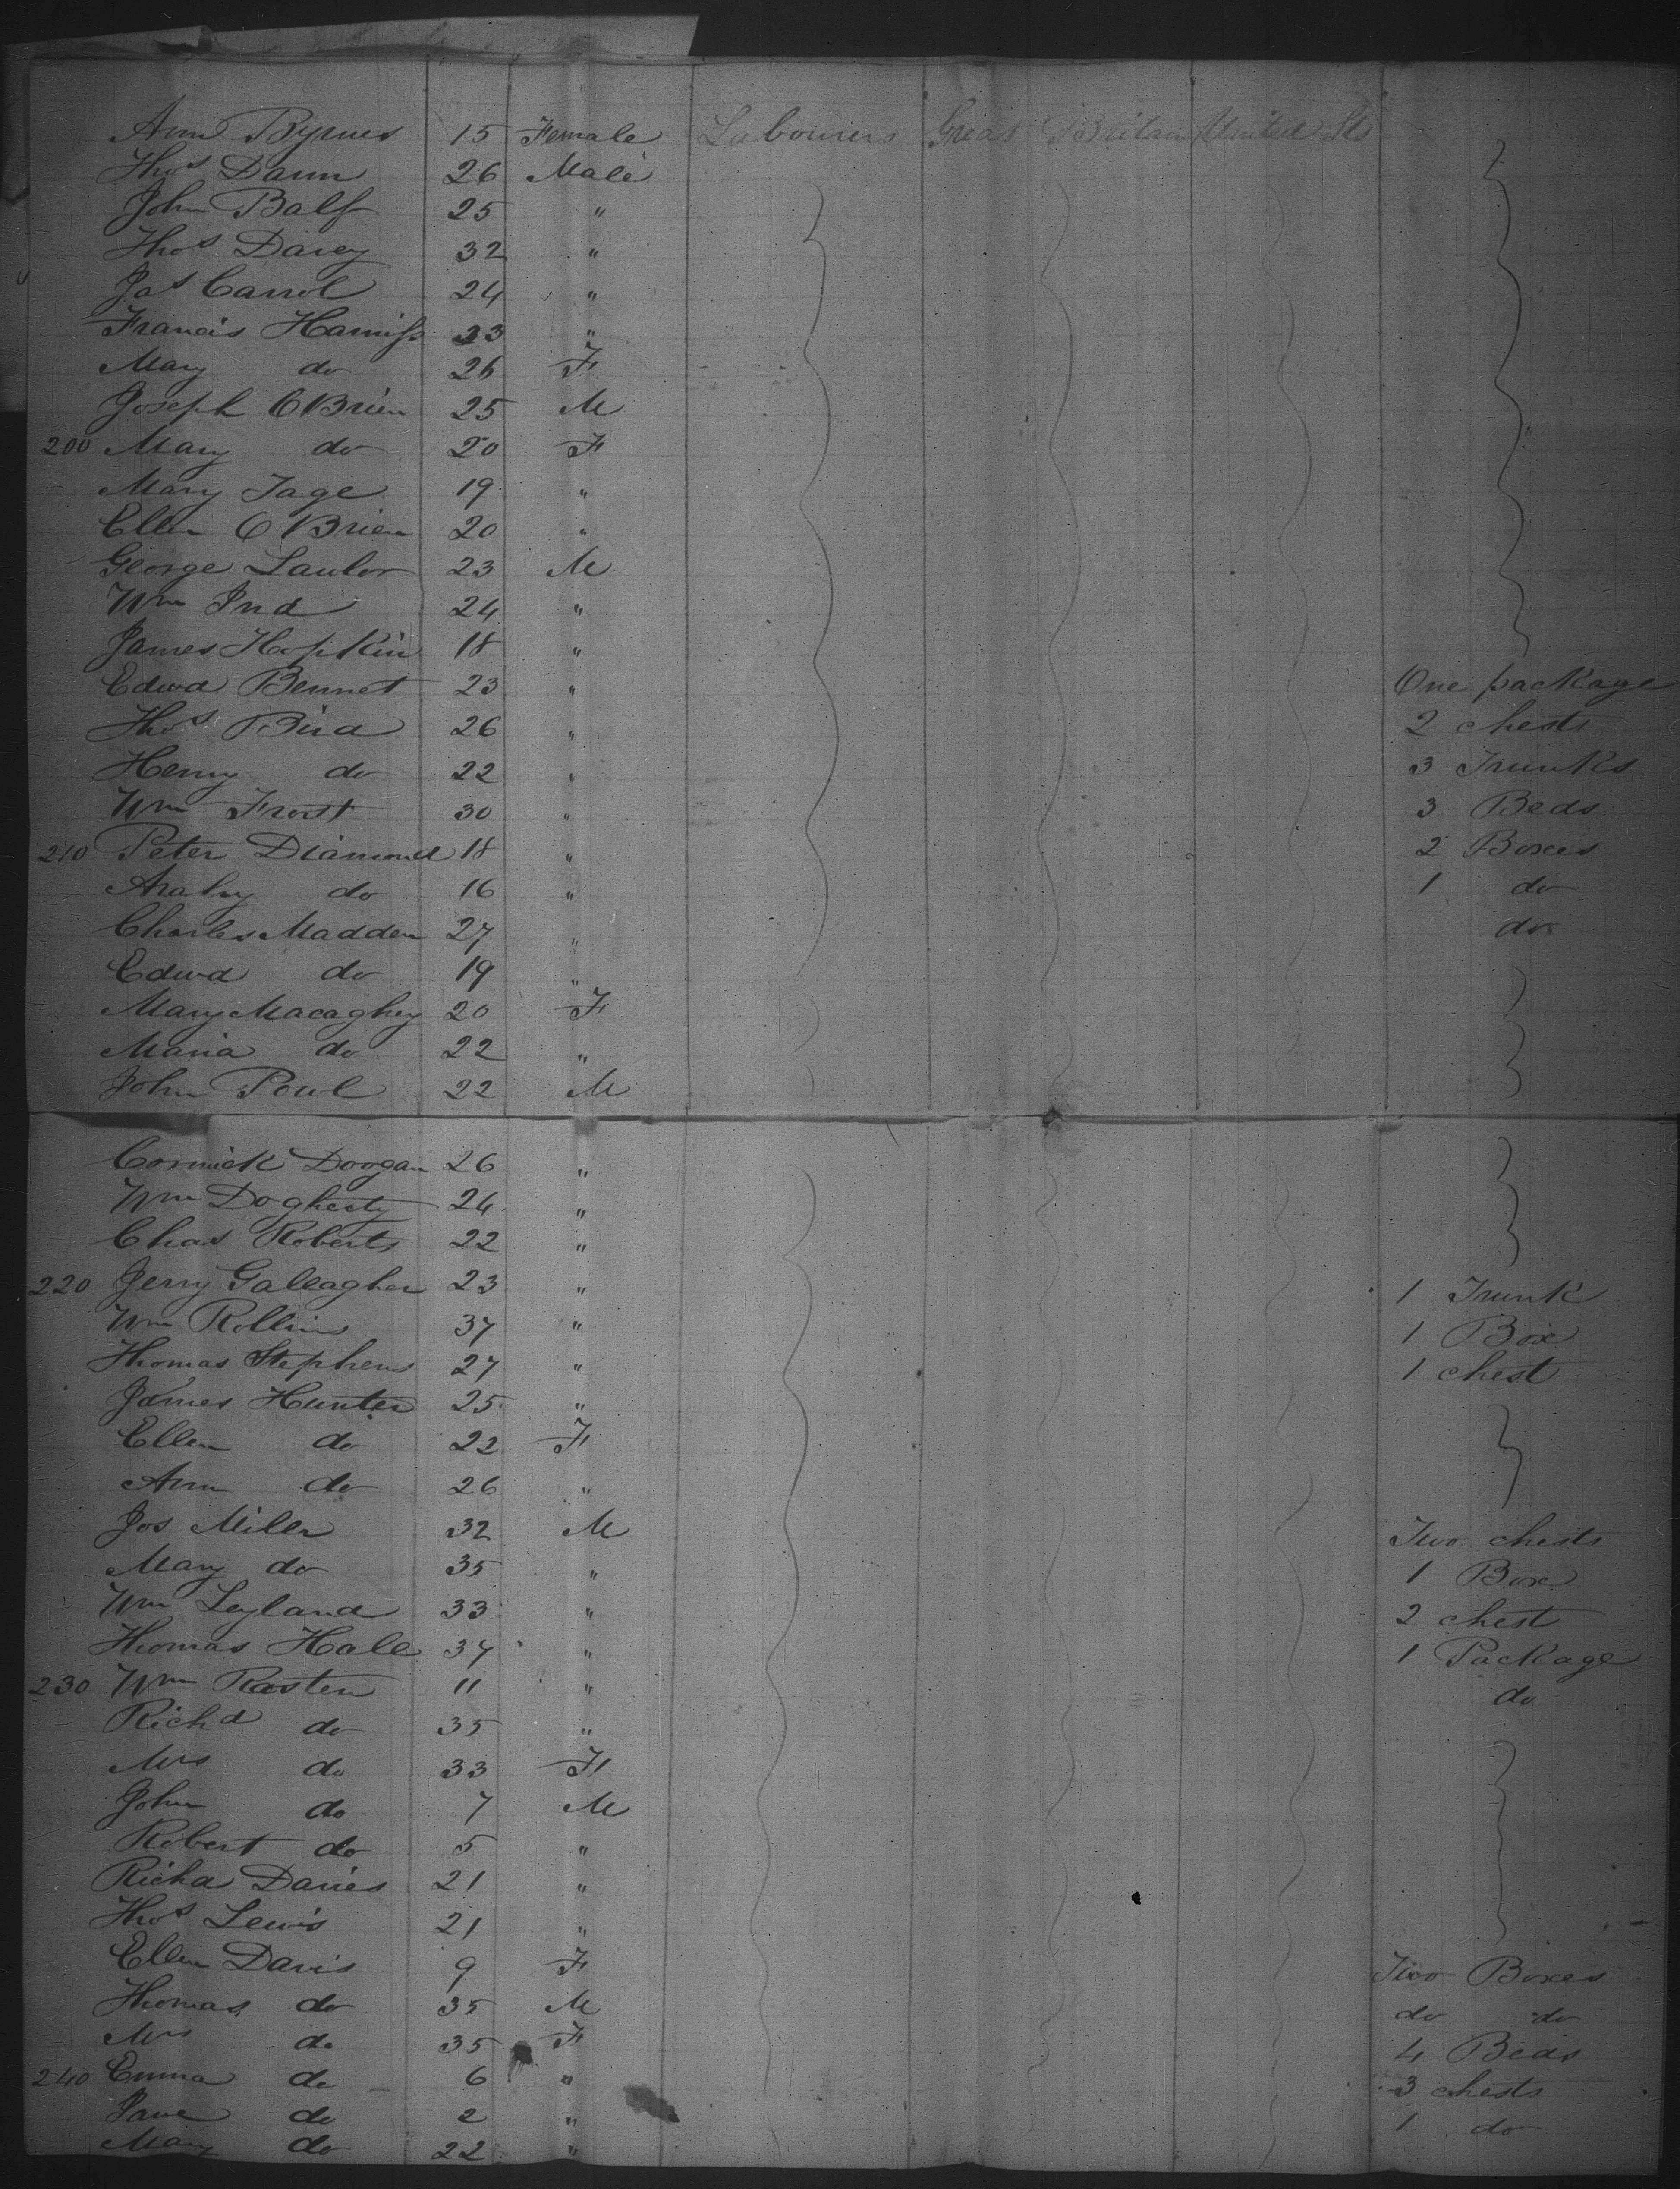 Ann Byrnes 15 Female Labourers Great Britain United Sts
Thos Dann 26 Male
John Balf 25 "
Thos Davey 32 "
Jas Carrol 24 "
Francis Harniss 23 "
Mary do 26 F
Joseph OBrien 25 M
200 Mary do 20 F
Mary Tage 19 "
Ellen O Brien 20 "
George Lawlor 23 M
Wm Ind 24 "
James Hopkin 18 "
Edwd Bennet 23 " One package
Thos Bird 26 " 2 chests
Henry do 22 " 3 Trunks
Wm Frost 30 " 3 Beds
210 Peter Diamond 18 " 2 Boxes
do 16 " 1 do
Charles Madden 27 " do
Edwd do 19 "
Mary Macaghey 20 F
Maria do 22 "
John Poul 22 M
Cormick Doogan 26 "
Wm Dogherty 24 "
Chas Roberts 22 "
220 Jerry Galleagher 23 " 1 Trunk
Wm Rollins 37 " 1 Box
Thomas Stephens 27 " 1 chest
James Hunter 25 "
Ellen do 22 F
Ann do 26 "
Jos Miller 32 M Two chests
Mary do 35 " 1 Box
Wm Leyland 33 " 2 chest
Thomas Hale 34 " 1 Package
230 Wm Rasten 11 " do
Richd do 35 "
Mrs do 33 F
John do 7 M
Robert do 5 "
Richd Davies 21 "
Thos Lewis 21 "
Ellen Davis 9 F Two Boxes
Thomas do 35 M do do
Mrs do 35 F 4 Beds
240 Emma do 6 " 3 chests
Jane do 2 " 1 do
Mary do 22 "